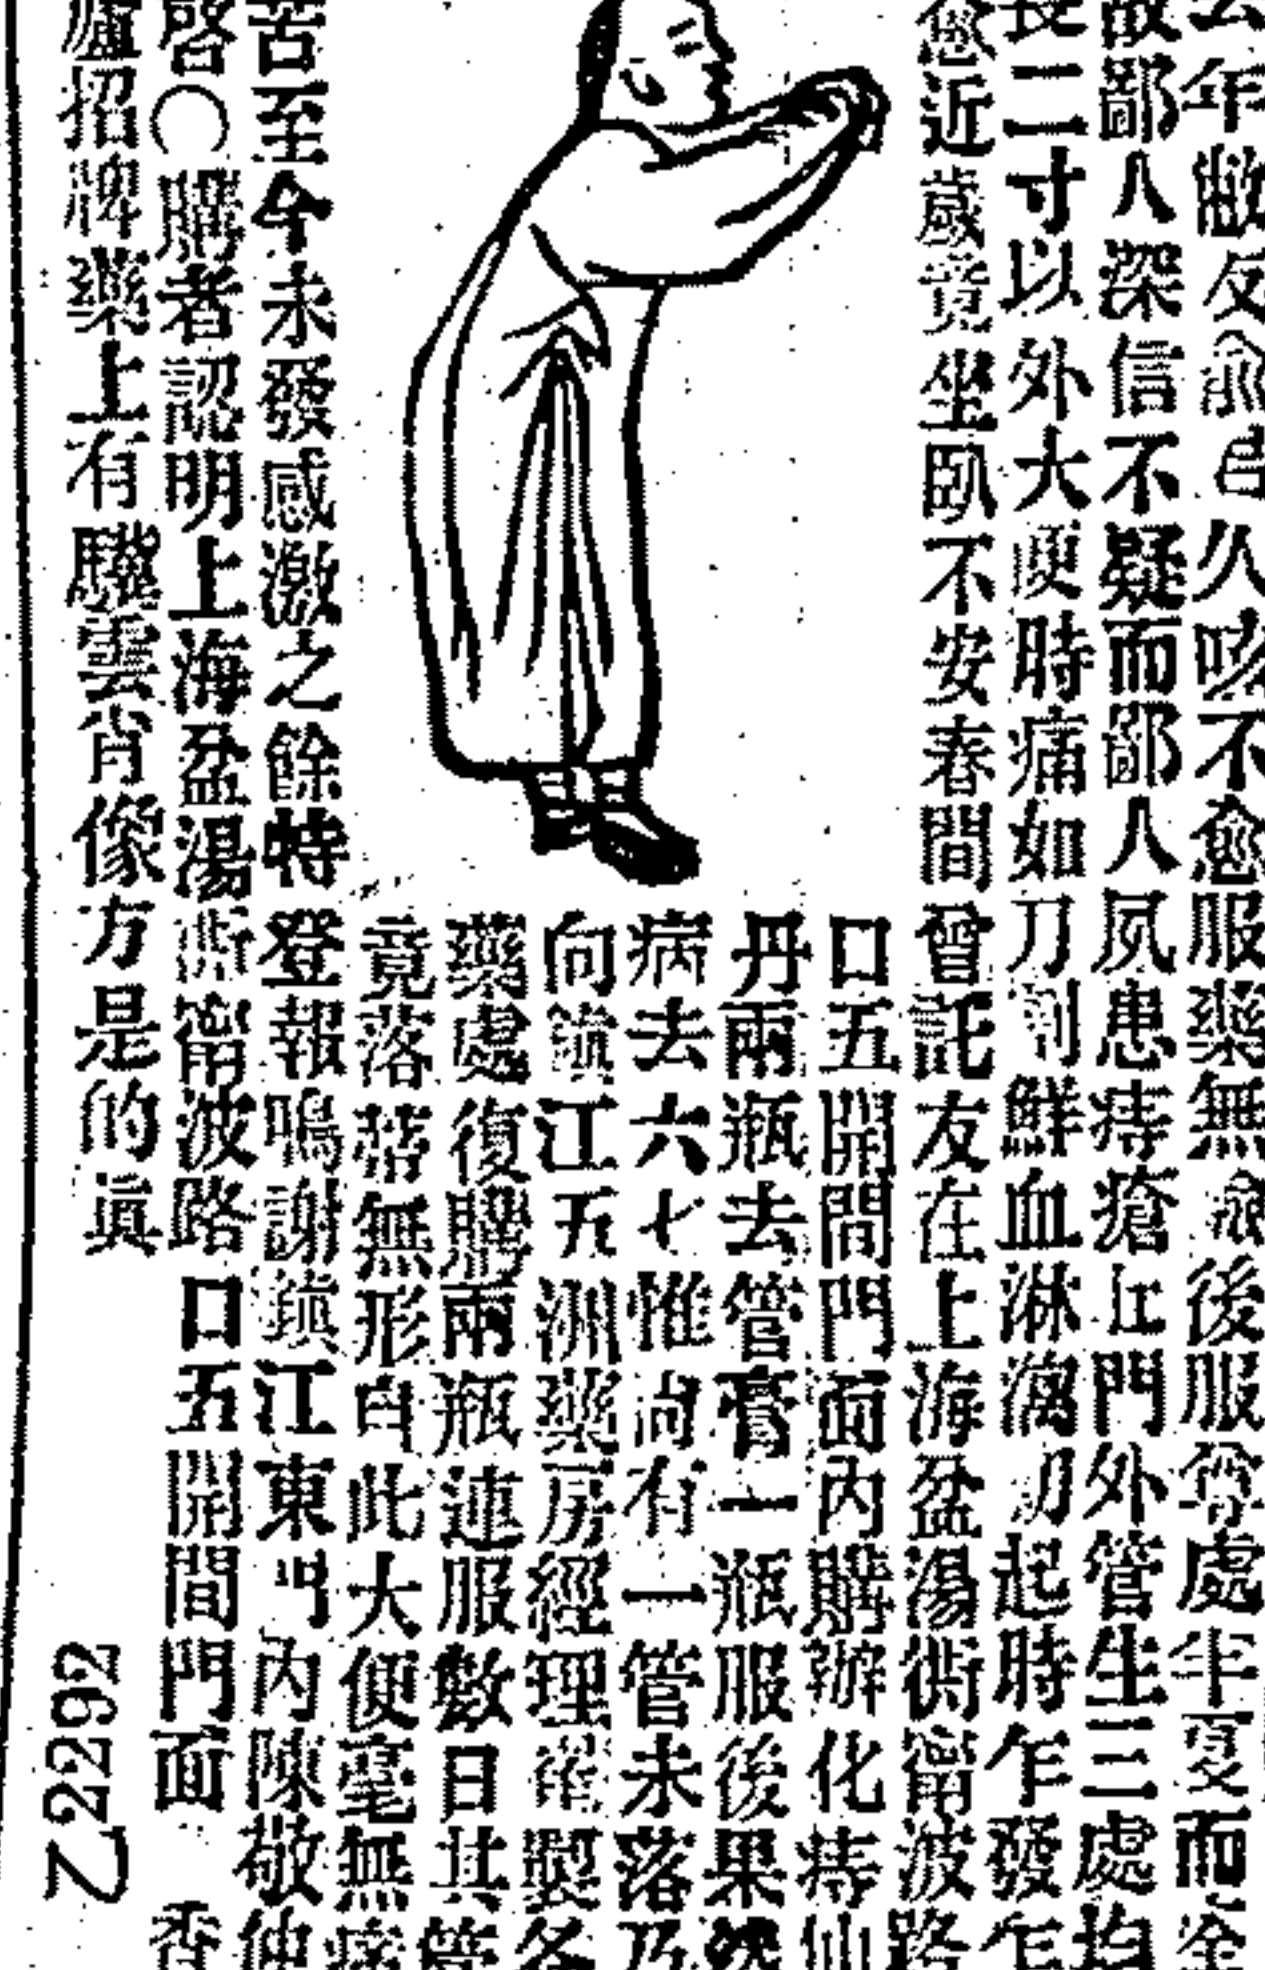 年敝友俞君久咳不愈服藥無效後服管處半夏而全
故鄙人深信不疑而鄙人夙患痔瘡江門外管生三處均
長二寸以外大便時痛如刀割鮮血淋漓初起時乍發乍
愈近歲竟坐臥不安春間曾託友在上海盆湯衖甯波路
口五開間門面內購辦化痔仙
丹兩瓶去管膏一瓶服後果然
病去六七惟尚有一管未落乃
向鎮江五洲藥房經理管製各
藥處復購兩瓶連服數日其管
竟落蒂無形自此大便毫無痛
苦至今未發感激之餘特登報鳴謝鎮江東門內陳敬仲
啓○購者認明上海盆湯衖甯波路口五開間門面 香
廬招牌藥上有驥雲肖像方是的真
Z2292